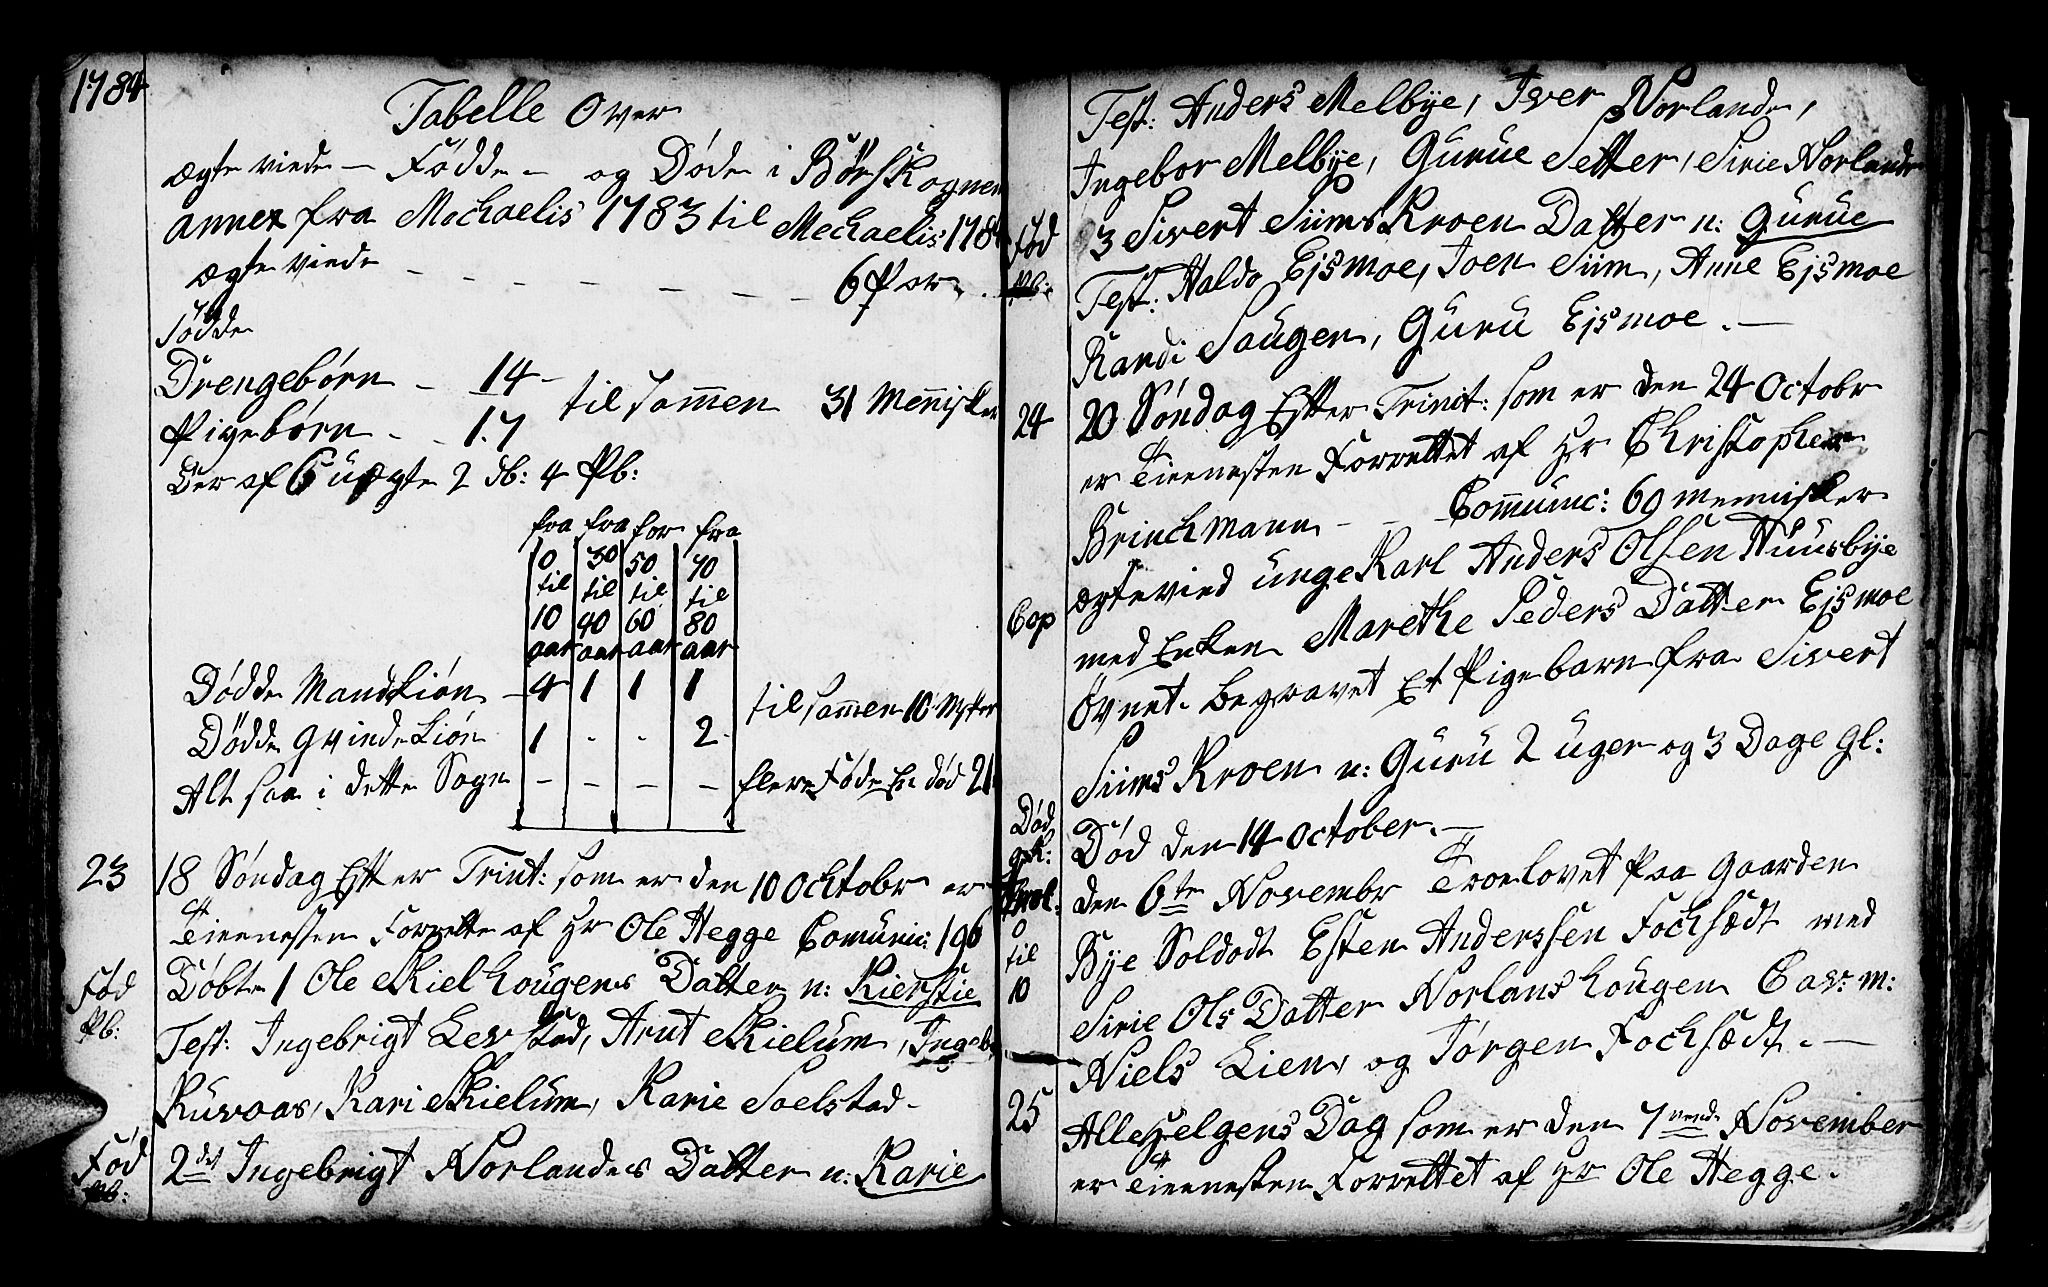 1784
Tabelle Over
ægte viede - Fødde - og Døde i Børskognen
annex fra Mechaelis 1783 til Mechaelis 1784
ægte viede - - - - - - 6 Par
Fødde
Drengebørn - 14 -
til sammen 31 Mennisker
Pigebørn - - 17
Der af 6 uægte 2 db: 4 Pb:
fra fra for fra
10 30 50 70
til til til til
10 40 60 80
aar aar aar aar
Dødde Mandkiøn - 4 1 1 1
til sammen 10 Msker
Dødde Qvindekiøn 1 - - 2
Alt saa i dette Sogn - - - - flere Føde En død 21
23 18 Søndag Efter Trint: som er den 10 Ochtobr er
Tieenesten Forrette af Hr Ole Hegge Comunic: 196
Fød Døbte 1 Ole Skiel Hougens Datter n: Kierstie
Pb:
Test: Ingebrigt Levstad, Arnt Skielum, Ingeb
Ruvaas, Kari Skielum, Karie Soelstad -
Fød 2det Ingebrigt Norlandes Datter n: Karie
Pb:
Test: Anders Melbye, Iver Norlande,
Ingebor Melbye, Gurue Setter, Sirie Norlande
Fød 3 Sivert Siims Kroen Datter n: Gurue
Pb: Test: Haldo Ejsmoe, Joen Siim, Anne Ejsmoe
Randi Saugen, Guru Ejsmoe. -
24 20 Søndag Efter Trinit: som er den 24 Octobr
er Tieenesten Forrettet af Hr Christopher
Brinchmann - - Communc: 69 mennisker
ægtevied unge Karl Anders Olsen Huusbye
Cop med Enken Marethe Peders Datter Ejsmoe
Øvnet. Begravet Et Pigebarn fra Sivert
Siims Kroen n: Guru 2 uger og 3 Dage gl:
Død
Død den 14 October. -
qk:
den 6te Novembr Troelovet Paa Gaarden
0
til
10
Bye Soldadt Esten Anderssen Fochsædt med
Sirie Ols Datter Norlans Hougen Cav: m:
Niels Lien, og Jørgen Fochsædt. -
25 Alle Helgens Dag som er den 7nende November
er Tieenesten Forrettet af Hr Ole Hegge.